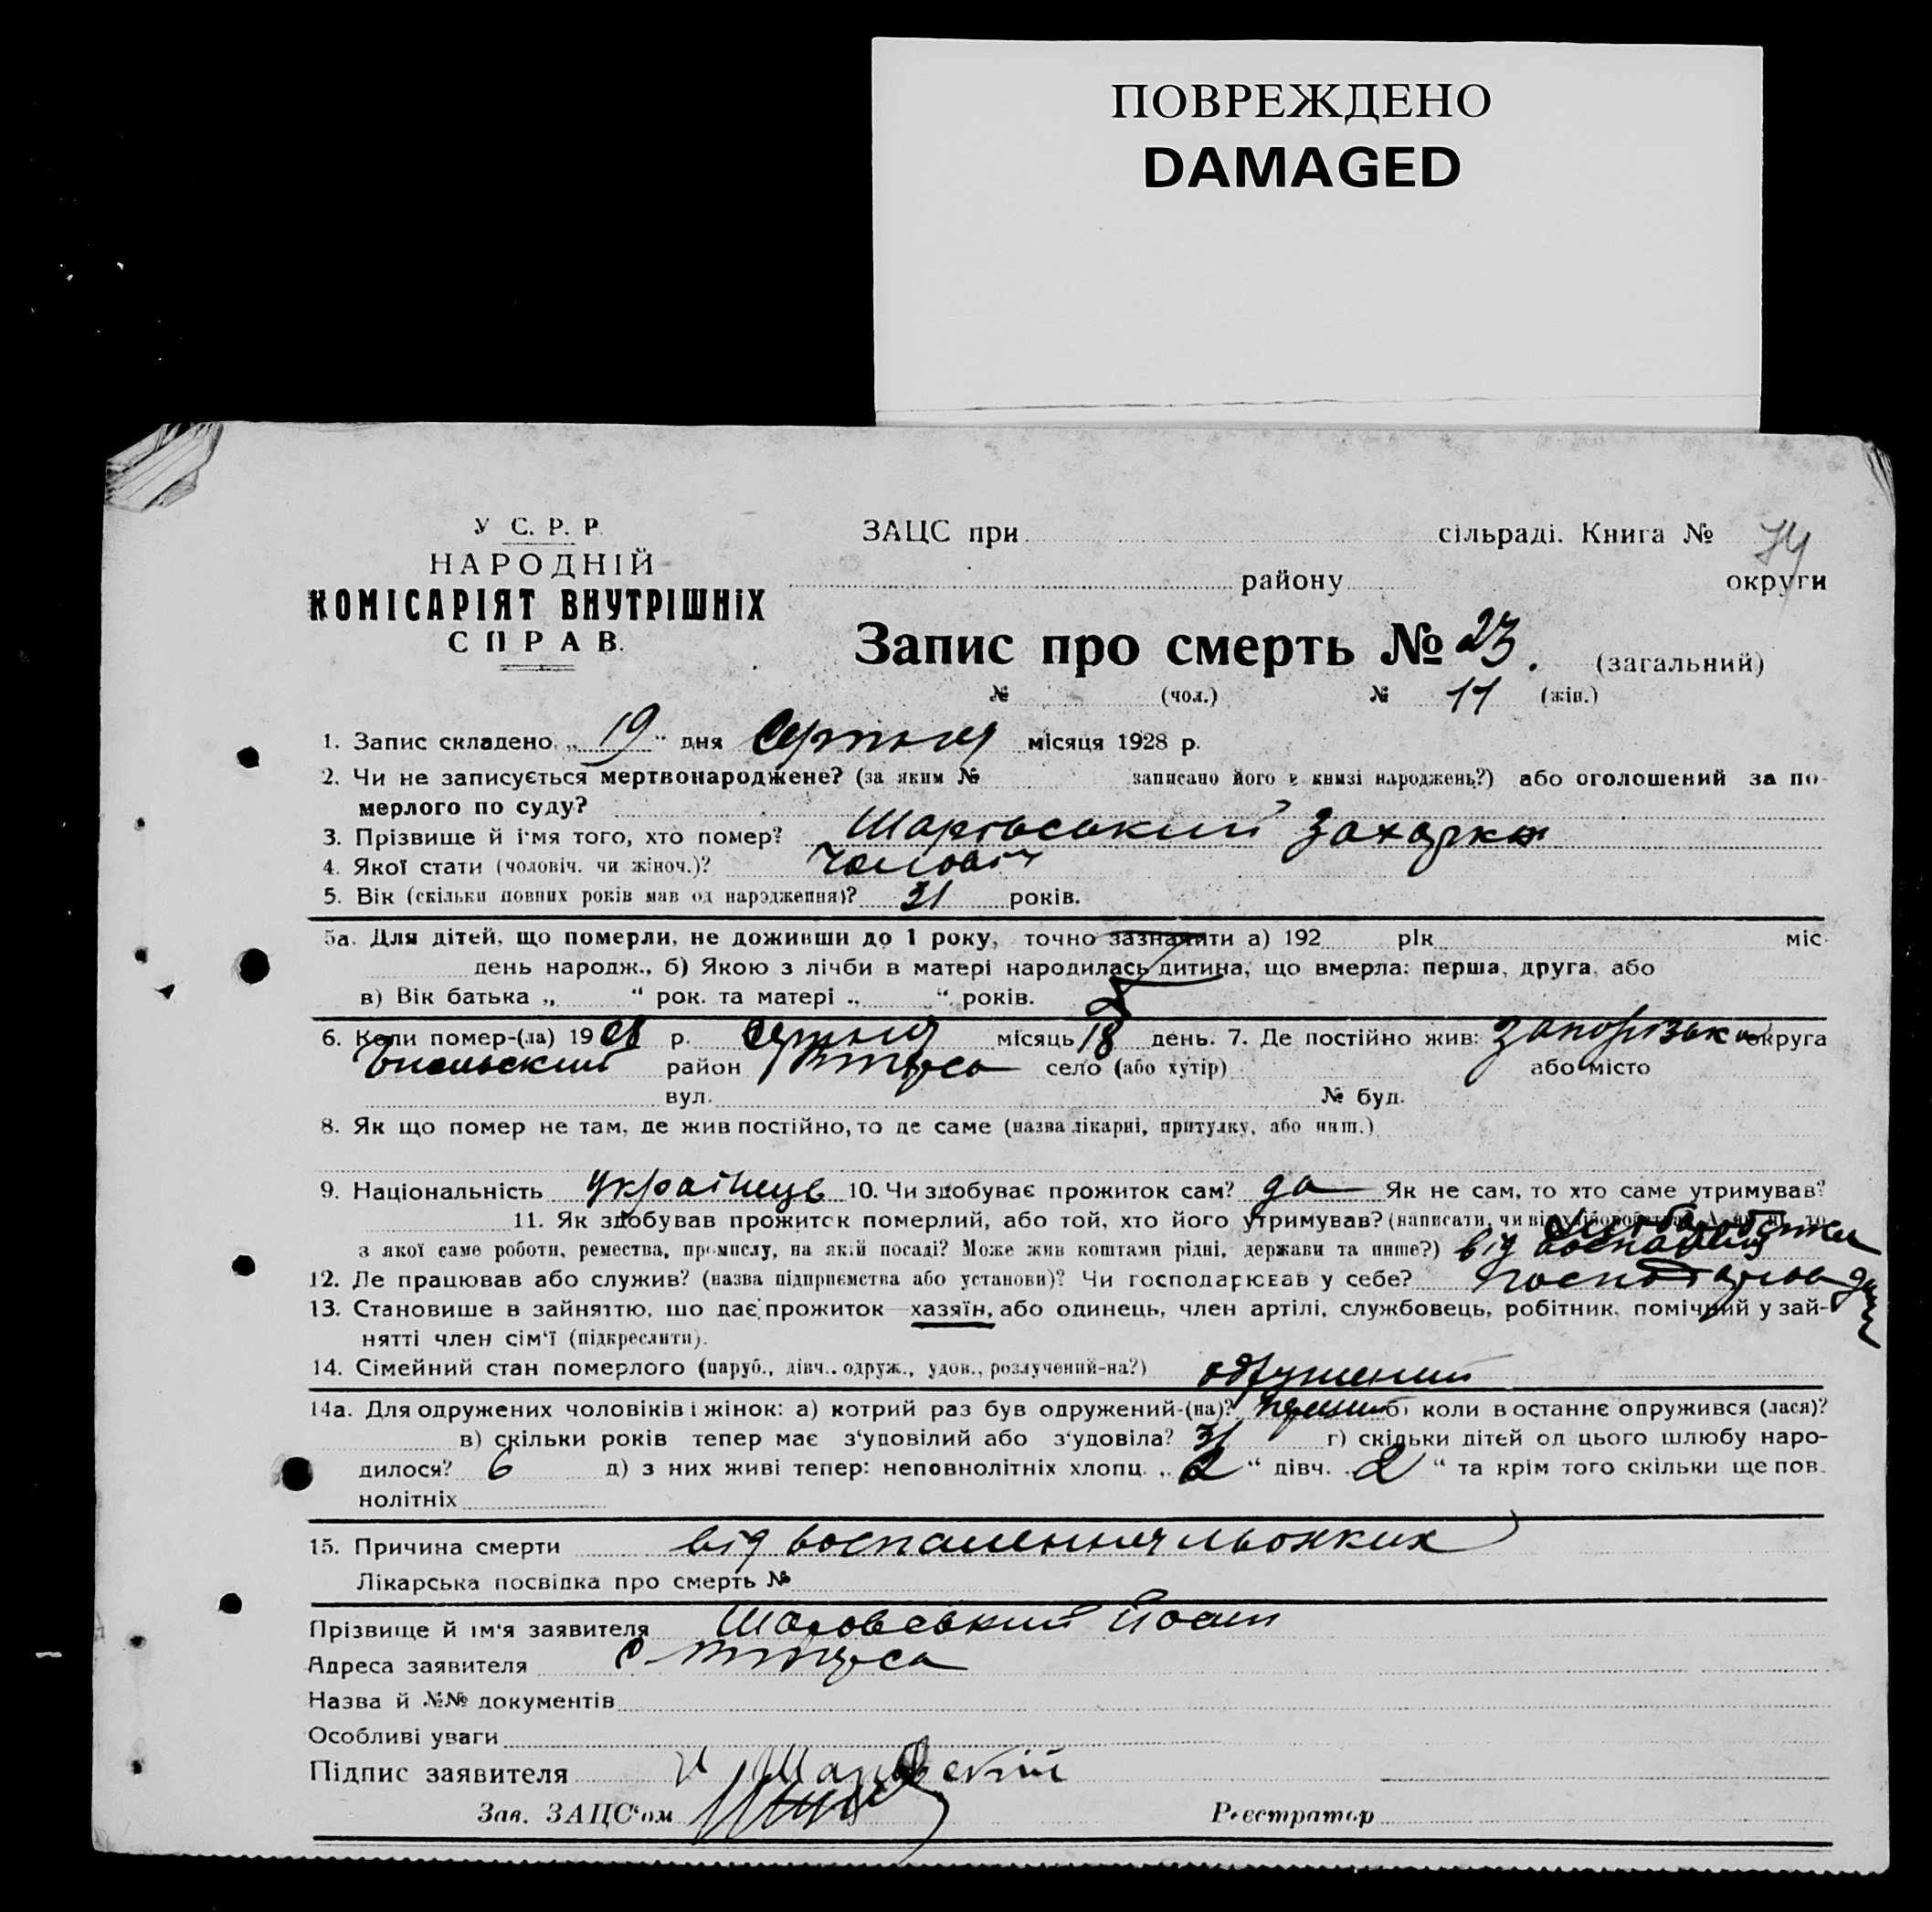 ПОВРЕЖДЕНО
DAMAGED
У С. Р. Р.
НАРОДНІЙ
КОМІСАРІЯТ ВНУТРІШНІХ
СПРАВ.
ЗАЦС при сільраді. Книга № 74
району округи
Запис про смерть № 23. (загальний)
№ (чол.) № 11 (жін.)
1. Запис складено „19“ дня серпня місяця 1928 р.
2. Чи не записується мертвонароджене? (за яким № записано його в книзі народжень?) або оголошений за по-
мерлого по суду?
3. Прізвище й ім'я того, хто помер? Шаровський
4. Якої стати (чоловіч. чи жіноч.)? чоловіч
5. Вік (скільки повних років мав од народження)? 31 років.
5а. Для дітей, що померли, не доживши до 1 року, точно зазначити а) 192 рік міс.
день народж., б) Якою з лічби в матері народилась дитина, що вмерла: перша, друга, або
в) Вік батька „ “ рок. та матері „ “ років.
6. Коли помер-(ла) 1928 р. серпня місяць 18 день. 7. Де постійно жив: Запорізька округа
район село (або хутір) або місто
вул. № буд.
8. Як що помер не там, де жив постійно, то де саме (назва лікарні, притулку, або инш.)
9. Національність українець 10. Чи здобуває прожиток сам? да Як не сам, то хто саме утримував?
11. Як здобував прожиток померлий, або той, хто його утримував? (написати, чи від
з якої саме роботи, ремества, промислу, на якій посаді? Може жив коштами рідні, держави та инше?) від
12. Де працював або служив? (назва підприємства або установи)? Чи господарював у себе?
13. Становище в зайняттю, що дає прожиток—хазяїн, або одинець, член артілі, службовець, робітник, помічний у зай-
нятті член сім'ї (підкреслити).
14. Сімейний стан померлого (паруб., дівч., одруж., удов., розлучений-на?) одружений
14а. Для одружених чоловіків і жінок: а) котрий раз був одружений-(на)? б) коли в останнє одружився (лася)?
в) скільки років тепер має з'удовілий або з'удовіла? 31 г) скільки дітей од цього шлюбу наро-
дилося? 6 д) з них живі тепер: неповнолітніх хлопц. „2“ дівч. „2“ та крім того скільки ще пов-
нолітніх
15. Причина смерти від воспаления льохких
Лікарська посвідка про смерть №
Прізвище й ім'я заявителя Шаровський
Адреса заявителя с
Назва й №№ документів
Особливі уваги
Підпис заявителя
Зав. ЗАЦС'ом Реєстратор